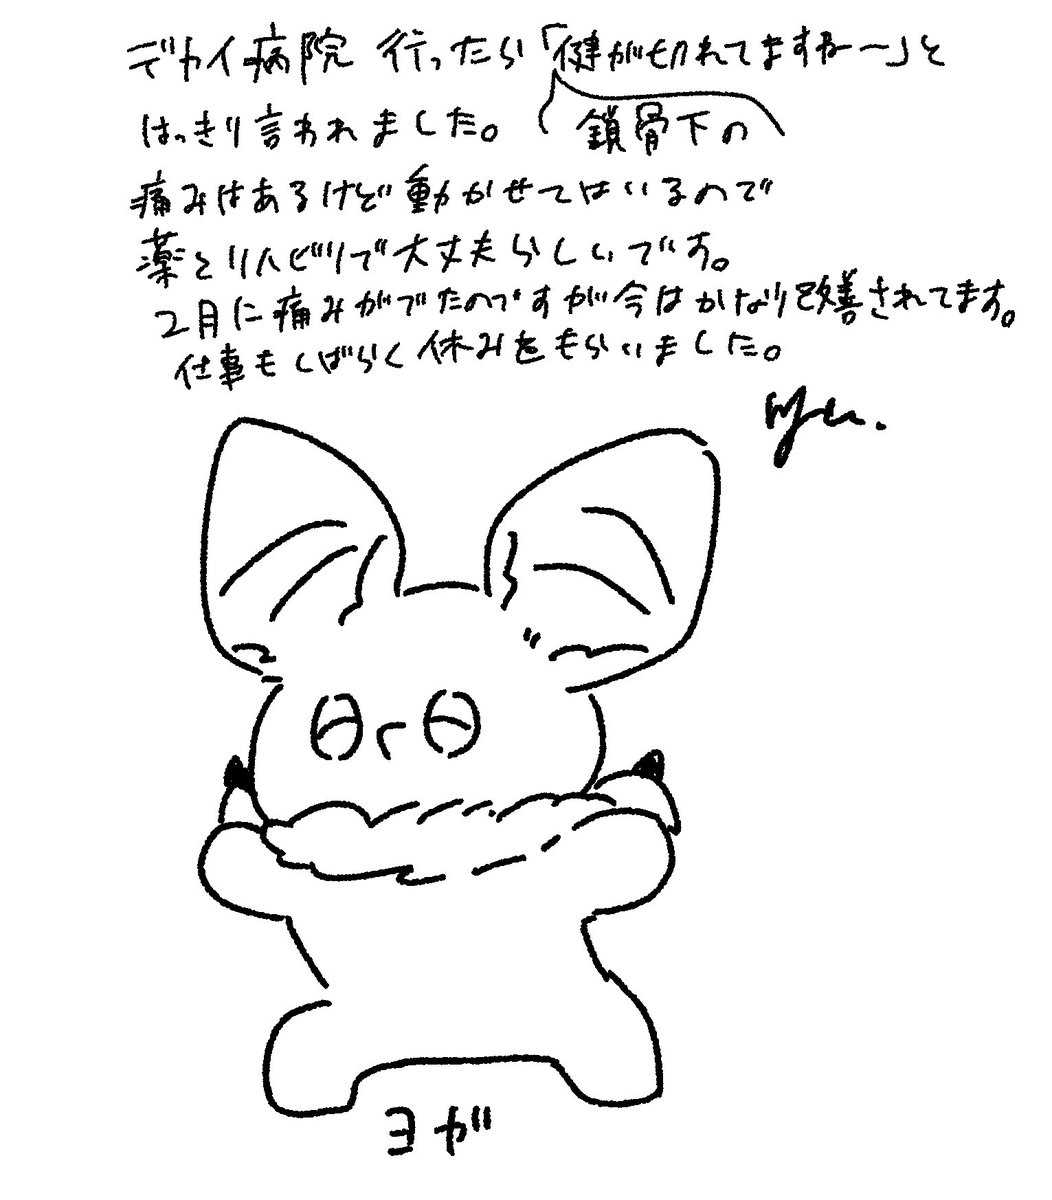 デカイ病院 行ったら「健が切れてますねー」と
はっきり言われました。
鎖骨下の
痛みはあるけど動かせてはいるので
薬とリハビリで大丈夫らしいです。
2月に痛みがでたのですが今はかなり改善されてます。
仕事もしばらく休みをもらいました。
ヨガ